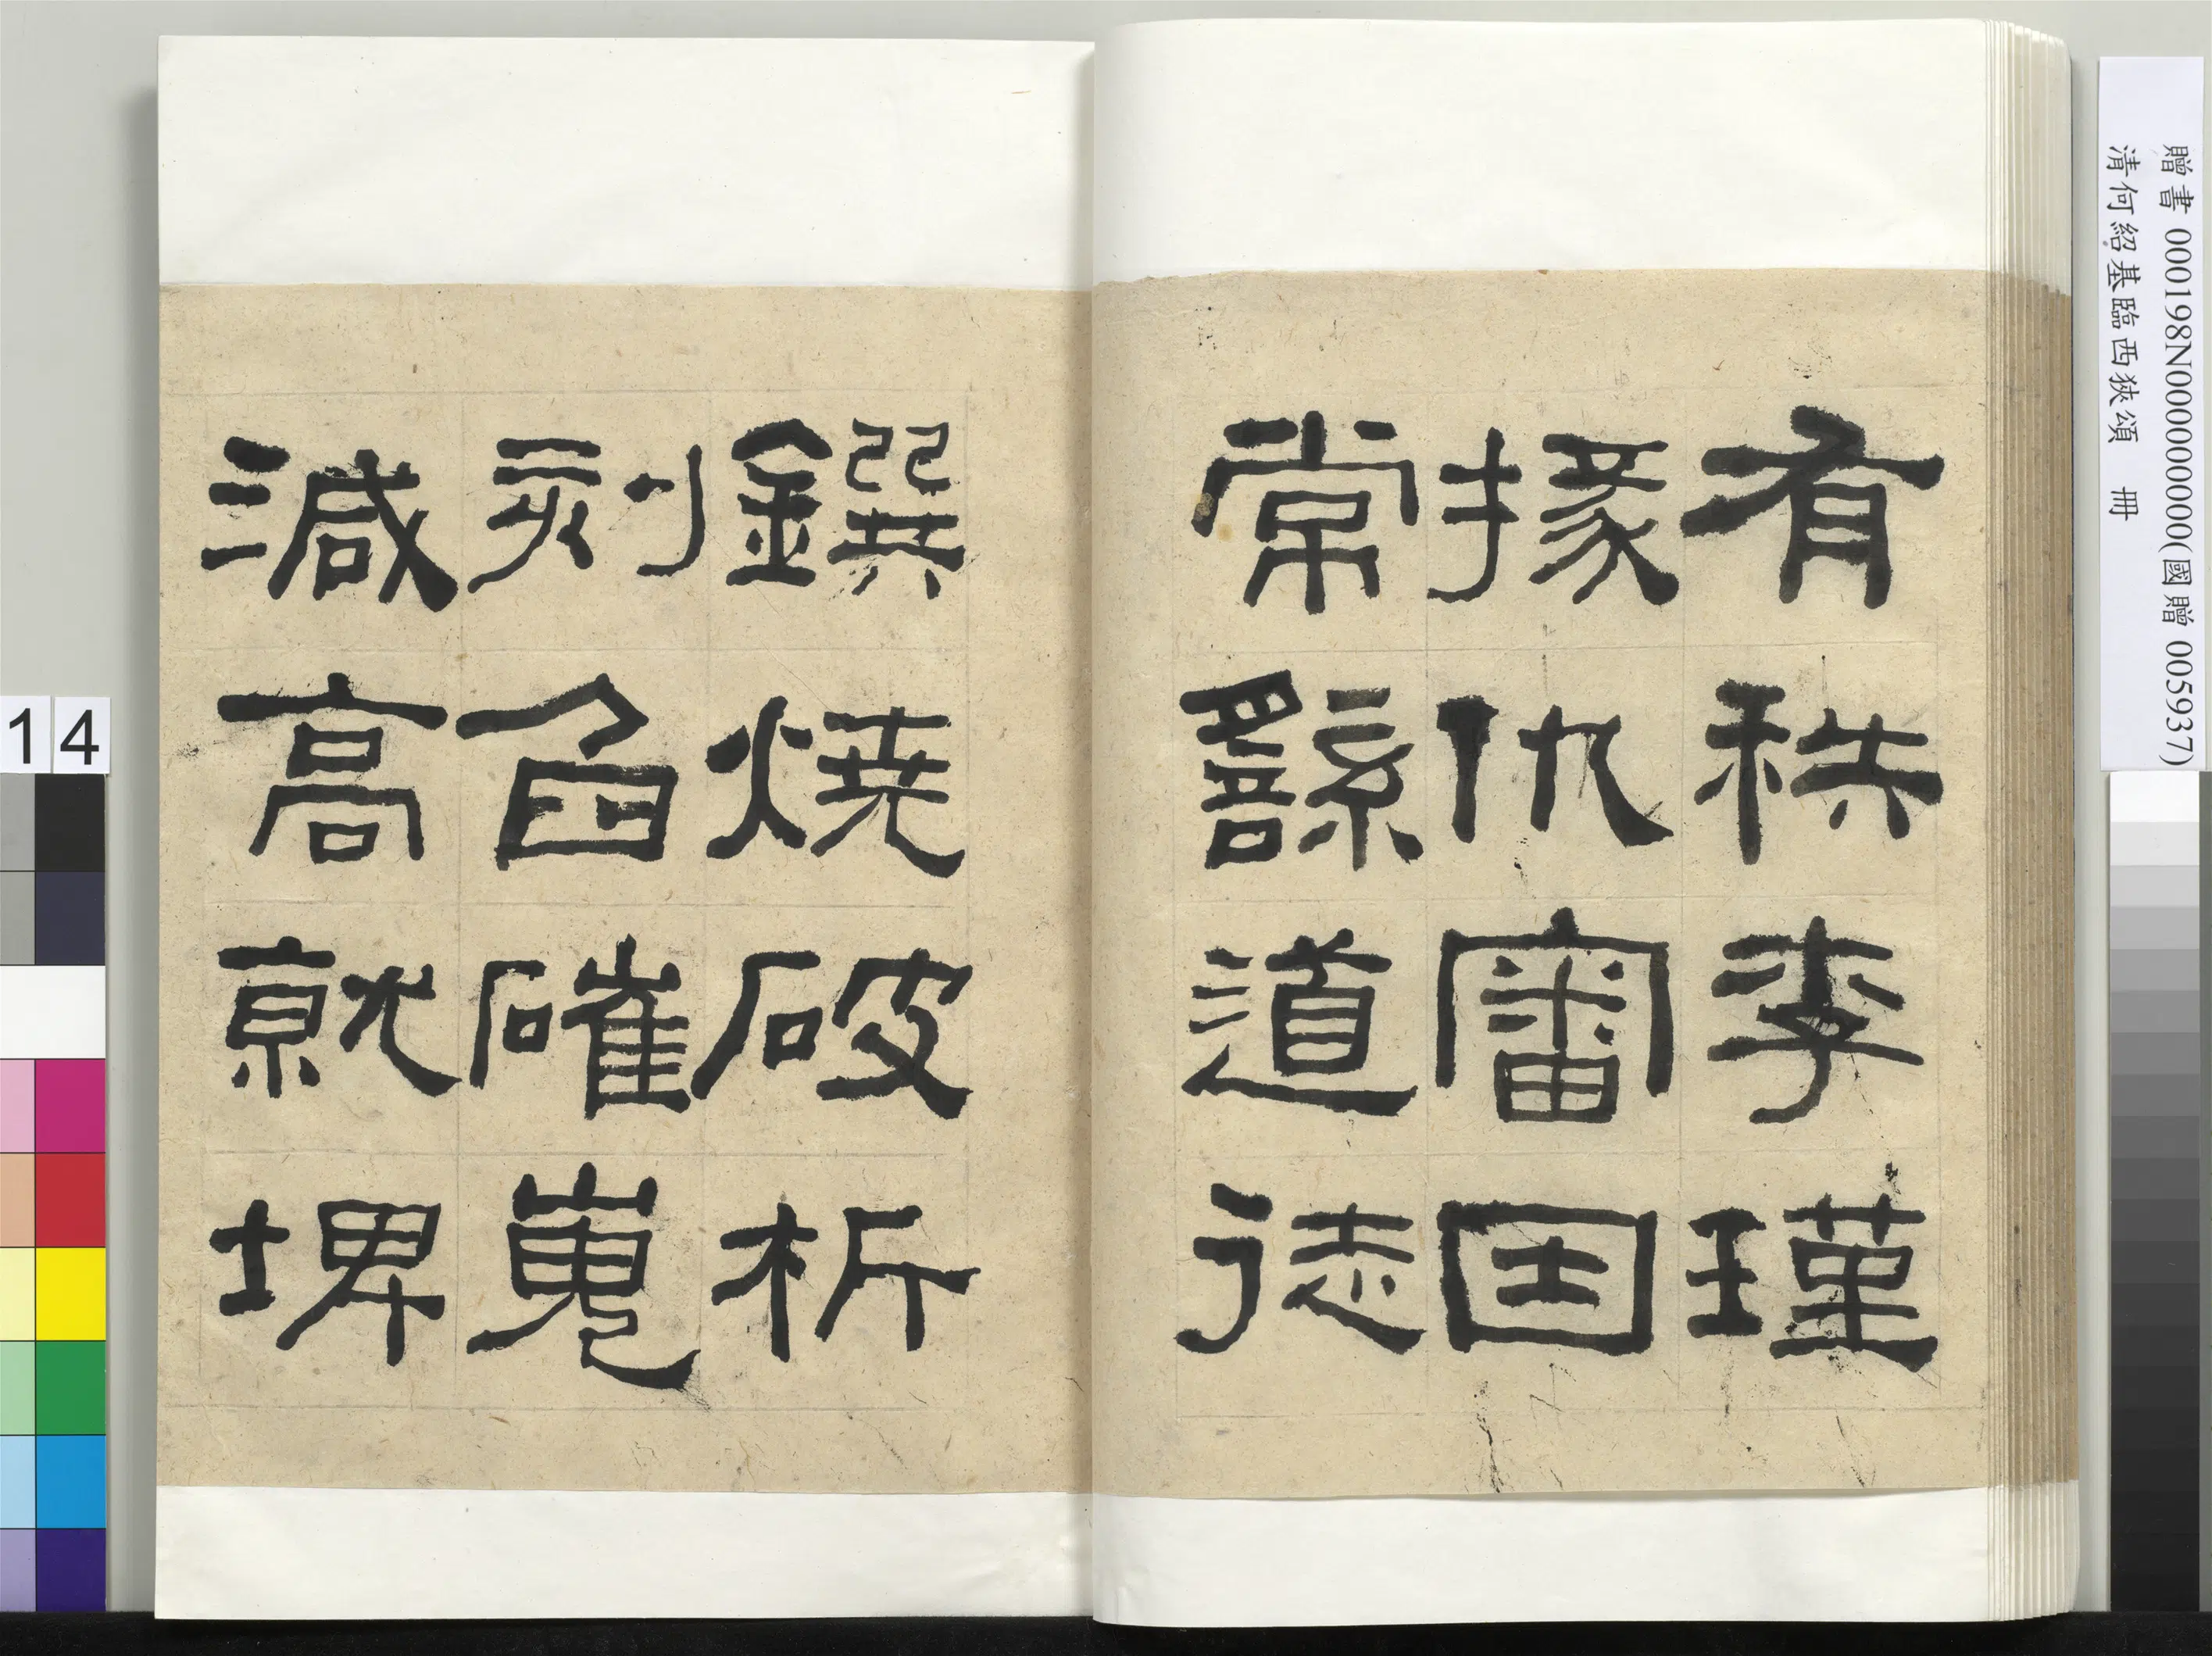 贈書 000198N000000000(國贈 005937)
清何紹基臨西狹頌 冊
有秩李瑾
掾仇審因
常繇道徒
鐉燒破析
刻臽磪嵬
減高就埤
14